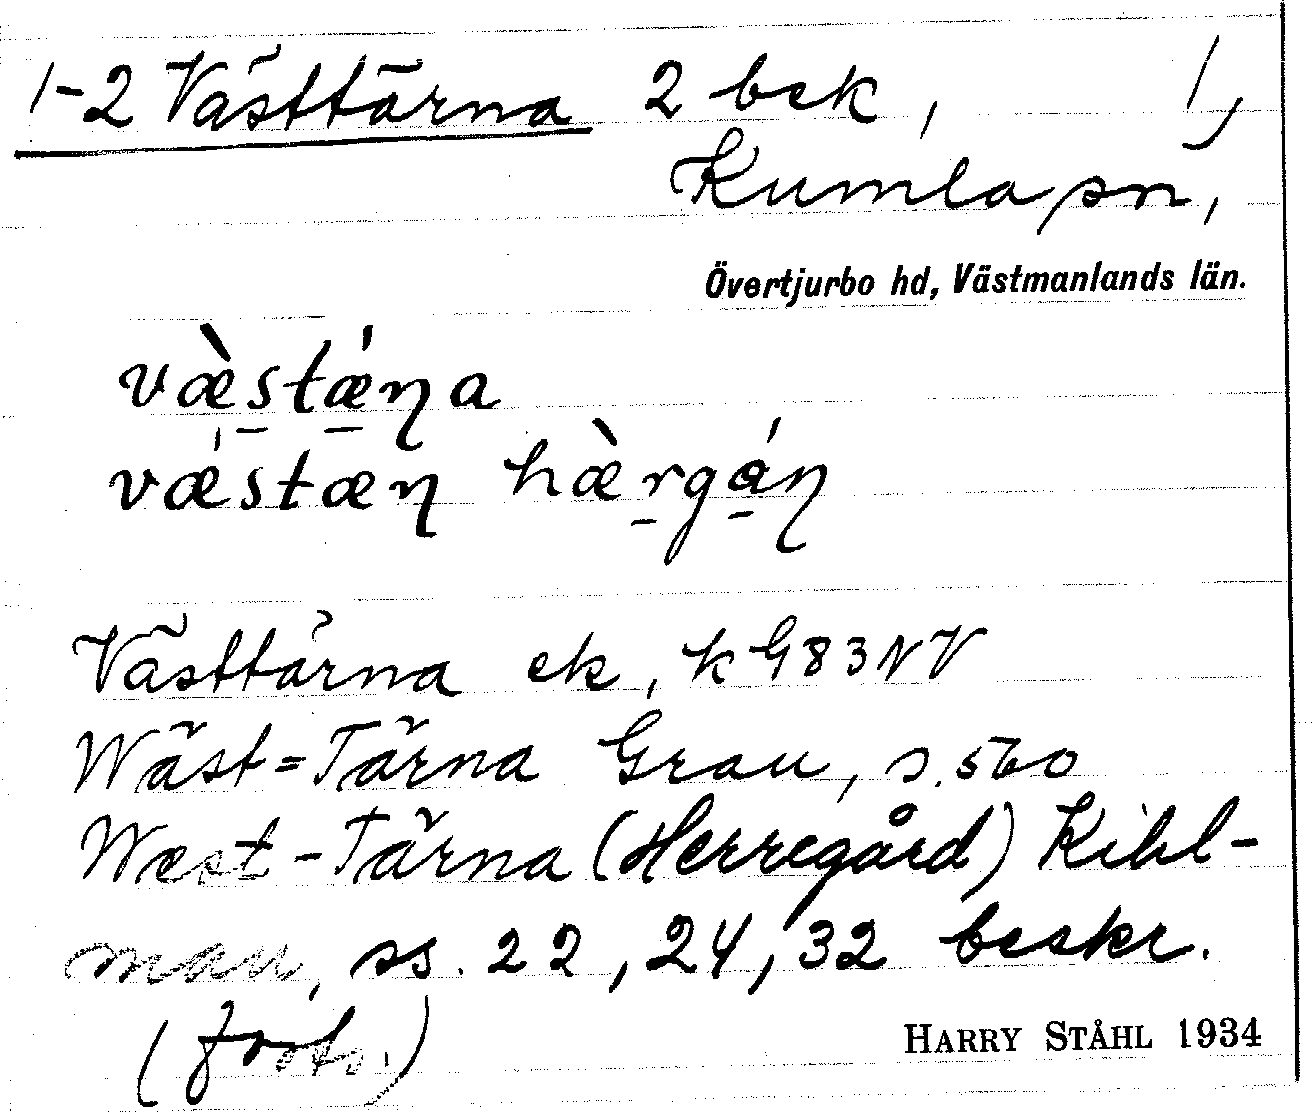 1-2 Västtärna 2 bek, 1,
Kumla sn,
Övertjurbo hd, Västmanlands län.
væ̀stǽɳa
vǽstæɳ hæ̀rgáɳ
Västtärna ek, k G83NV
Wäst=Tärna Grau, s. 560
West-Tärna (Herregård) Kihl-
man, ss. 22, 24, 32 beskr.
(forts.)
HARRY STÅHL 1934